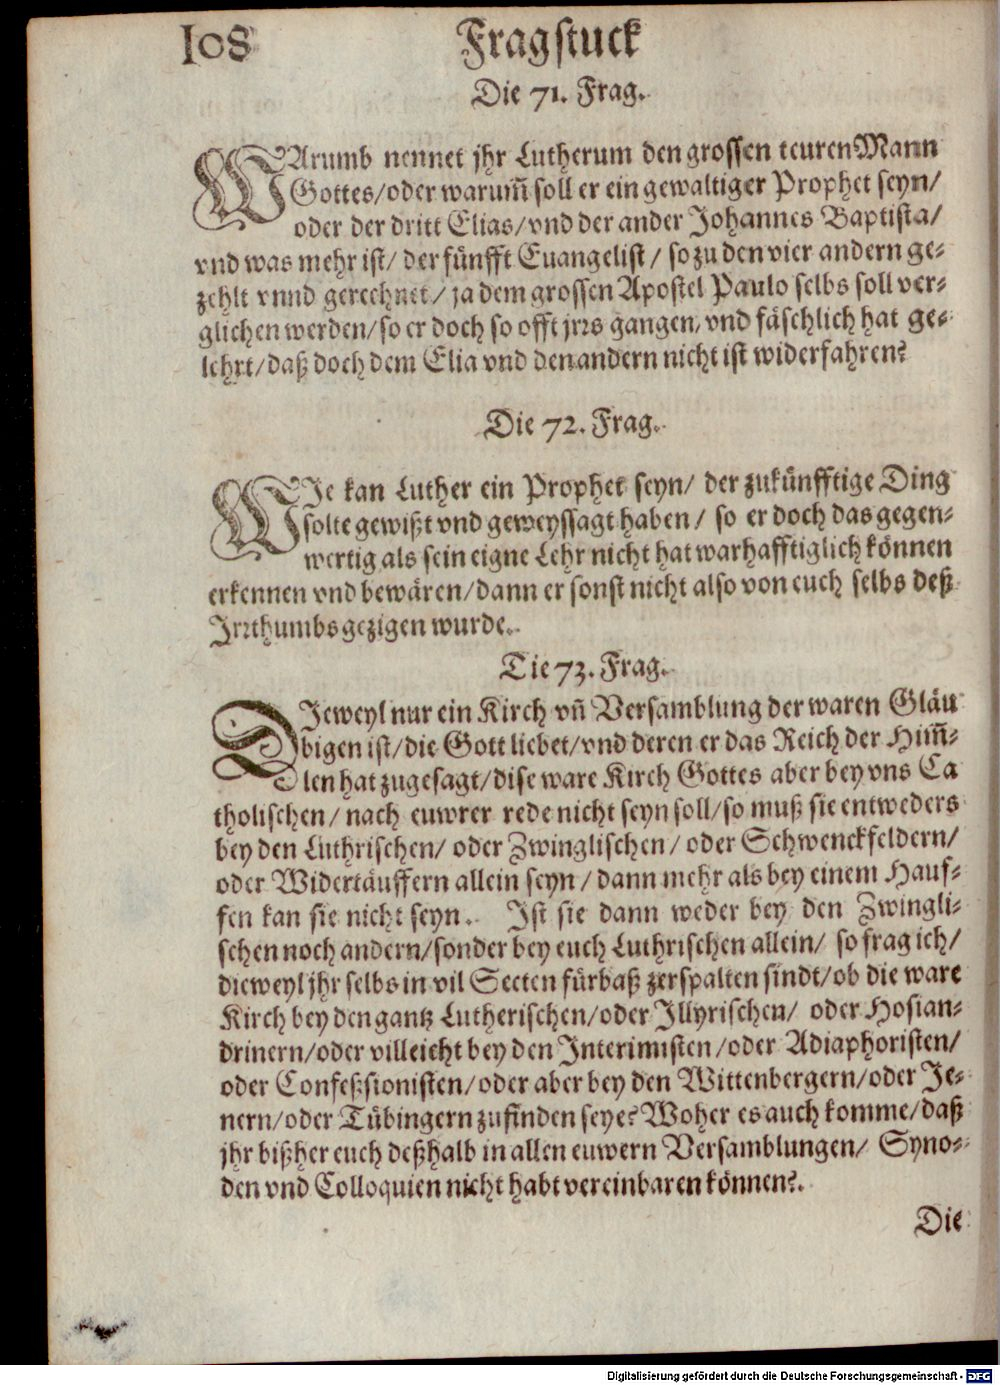 108 Fragstuck
Die 71. Frag.
WArumb nennet jhr Lutherum den grossen teuren Mann
Gottes/ oder warum̃ soll er ein gewaltiger Prophet seyn/
oder der dritt Elias/ vnd der ander Johannes Baptista/
vnd was mehr ist/ der fünfft Euangelist / so zu den vier andern ge-
zehlt vnnd gerechnet/ ja dem grossen Apostel Paulo selbs soll ver-
glichen werden/ so er doch so offt jrrs gangen, vnd fäschlich hat ge-
lehrt/ daß doch dem Elia vnd den andern nicht ist widerfahren?
Die 72. Frag.
WJe kan Luther ein Prophet seyn/ der zukünfftige Ding
solte gewißt vnd geweyssagt haben/ so er doch das gegen-
wertig als sein eigne Lehr nicht hat warhafftiglich können
erkennen vnd bewären/ dann er sonst nicht also von euch selbs deß
Jrrthumbs gezigen wurde.
Die 73. Frag.
DJeweyl nur ein Kirch vñ Versamblung der waren Gläu
bigen ist/ die Gott liebet/ vnd deren er das Reich der Him̃-
len hat zugesagt/ dise ware Kirch Gottes aber bey vns Ca
tholischen/ nach euwrer rede nicht seyn soll/ so muß sie entweders
bey den Luthrischen/ oder Zwinglischen/ oder Schwenckfeldern/
oder Widertäuffern allein seyn / dann mehr als bey einem Hauf-
fen kan sie nicht seyn. Jst sie dann weder bey den Zwingli-
schen noch andern/ sonder bey euch Luthrischen allein/ so frag ich/
dieweyl jhr selbs in vil Secten fürbaß zerspalten sindt/ ob die ware
Kirch bey den gantz Lutherischen/ oder Jllyrischen/ oder Hosian-
drinern/ oder villeicht bey den Interimisten / oder Adiaphoristen/
oder Confeßsionisten/ oder aber bey den Wittenbergern/ oder Je-
nern/ oder Tübingern zufinden seye? Woher es auch komme/ daß
jhr bißher euch deßhalb in allen euwern Versamblungen/ Syno-
den vnd Colloquien nicht habt vereinbaren können?
Die
Digitalisierung gefördert durch die Deutsche Forschungsgemeinschaft - DFG